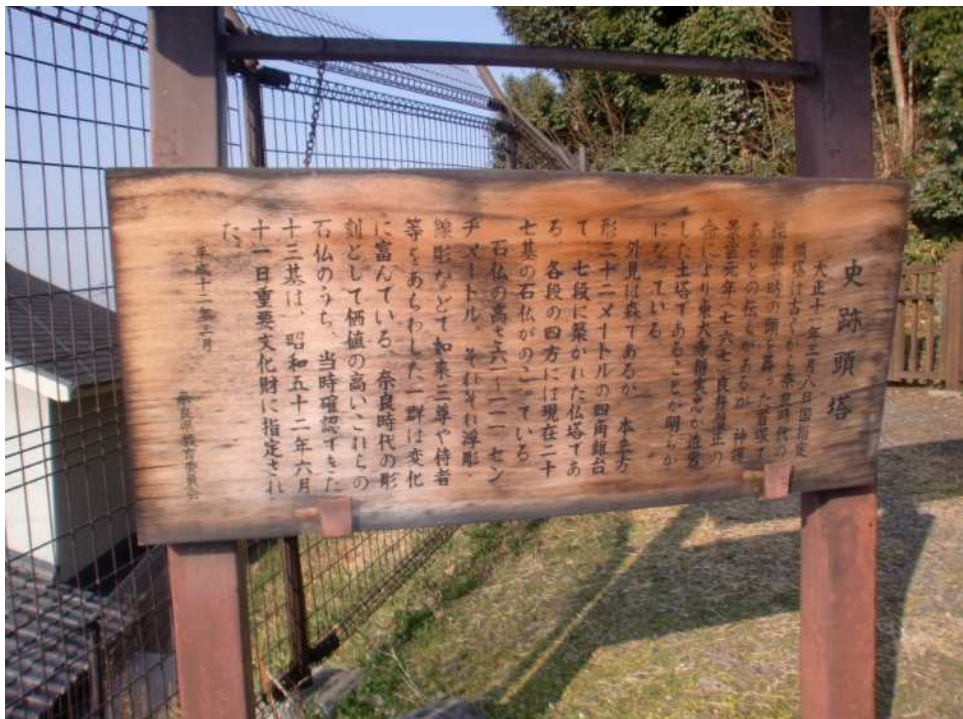 史跡頭塔
大正十一年三月八日国指定
頭塔は古くから奈良時代の
僧道玄昉の頭を葬った首塚で
あるとの伝えがあるが 神護
景雲元年(七六七)良弁僧正の
命により東大寺僧実忠が造営
した土塔であることが明らか
になっている
外見は森であるが 本来方
形三十二メートルの四角錐台
て 七段に築かれた仏塔であ
る 各段の四方には現在二十
七基の石仏がのこっている
石仏の高さ六一〜一一一セン
チメートル それぞれ浮彫・
線彫などで如来三尊や侍者
等をあらわした一群は変化
に富んている、奈良時代の彫
刻として価値の高いこれらの
石仏のうち、当時確認できた
十三基は、昭和五十二年六月
十一日重要文化財に指定され
た。
平成十二年三月
奈良県教育委員会